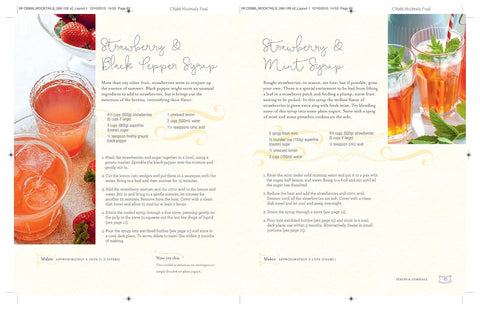 C1566 Mocktails Final
C1566 Mocktails Final
Strawberry &
Black Pepper Syrup
More than any other fruit, strawberries seem to conjure up
the essence of summer. Black pepper might seem an unusual
ingredient to add to strawberries, but it brings out the
sweetness of the berries, intensifying their flavor.
4½ cups (500g) strawberries
(5 cups if large)
(caster) sugar
½ teaspoon freshly ground
black pepper
1 unwaxed lemon
2 cups (500ml) water
1½ teaspoons citric acid
1. Mash the strawberries and sugar together in a bowl, using a
potato masher. Sprinkle the black pepper over the mixture and
gently stir in.
2. Cut the lemon into wedges and put them in a saucepan with the
water. Bring to a boil and then simmer for 15 minutes.
3. Add the strawberry mixture and the citric acid to the lemon and
water. Stir in and bring to a gentle simmer, let simmer for
another 15 minutes. Remove from the heat. Cover with a clean
dish towel and allow to cool for at least 2 hours.
4. Strain the cooled syrup through a fine sieve, pressing gently on
the pulp in the sieve to squeeze out the last few drops of liquid
(see page 12).
5. Pour the syrup into sterilized bottles (see page 11) and store in
a cool, dark place. To serve, dilute to taste. Use within 3 months
of making.
Makes APPROXIMATELY 5 CUPS (1.2 LITERS)
Now try this
This cordial is delicious on meringues or
simply drizzled on plain yogurt.
Strawberry &
Mint Syrup
Bought strawberries, in season, are fine, but if possible, grow
your own. There is a special excitement to be had from lifting
a leaf in a strawberry patch and finding a plump, warm fruit
waiting to be picked. In this syrup the mellow flavor of
strawberries is given extra zing with fresh mint. Try blending
some of this syrup into some plain yogurt. Serve with a sprig
of mint and some pistachio cookies on the side.
5 sprigs fresh mint
(caster) sugar
½ unwaxed lemon
(5 cups if large)
½ teaspoon citric acid
1. Rinse the mint under cold running water and put it in a pan with
the sugar, half lemon, and water. Bring to a boil and stir until all
the sugar has dissolved.
2. Reduce the heat and add the strawberries and citric acid.
Simmer until all the strawberries are soft. Cover with a clean
dish towel and let cool and steep overnight.
3. Strain the syrup through a sieve (see page 12).
4. Pour into sterilized bottles (see page 11) and store in a cool,
dark place; use within 3 months. Alternatively, freeze in small
portions (see page 11).
Makes APPROXIMATELY 2 CUPS (500ML)
SYRUPS & CORDIALS